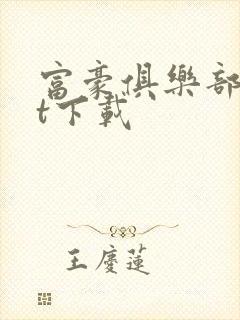 富豪俱樂部
t下載
王慶蓮